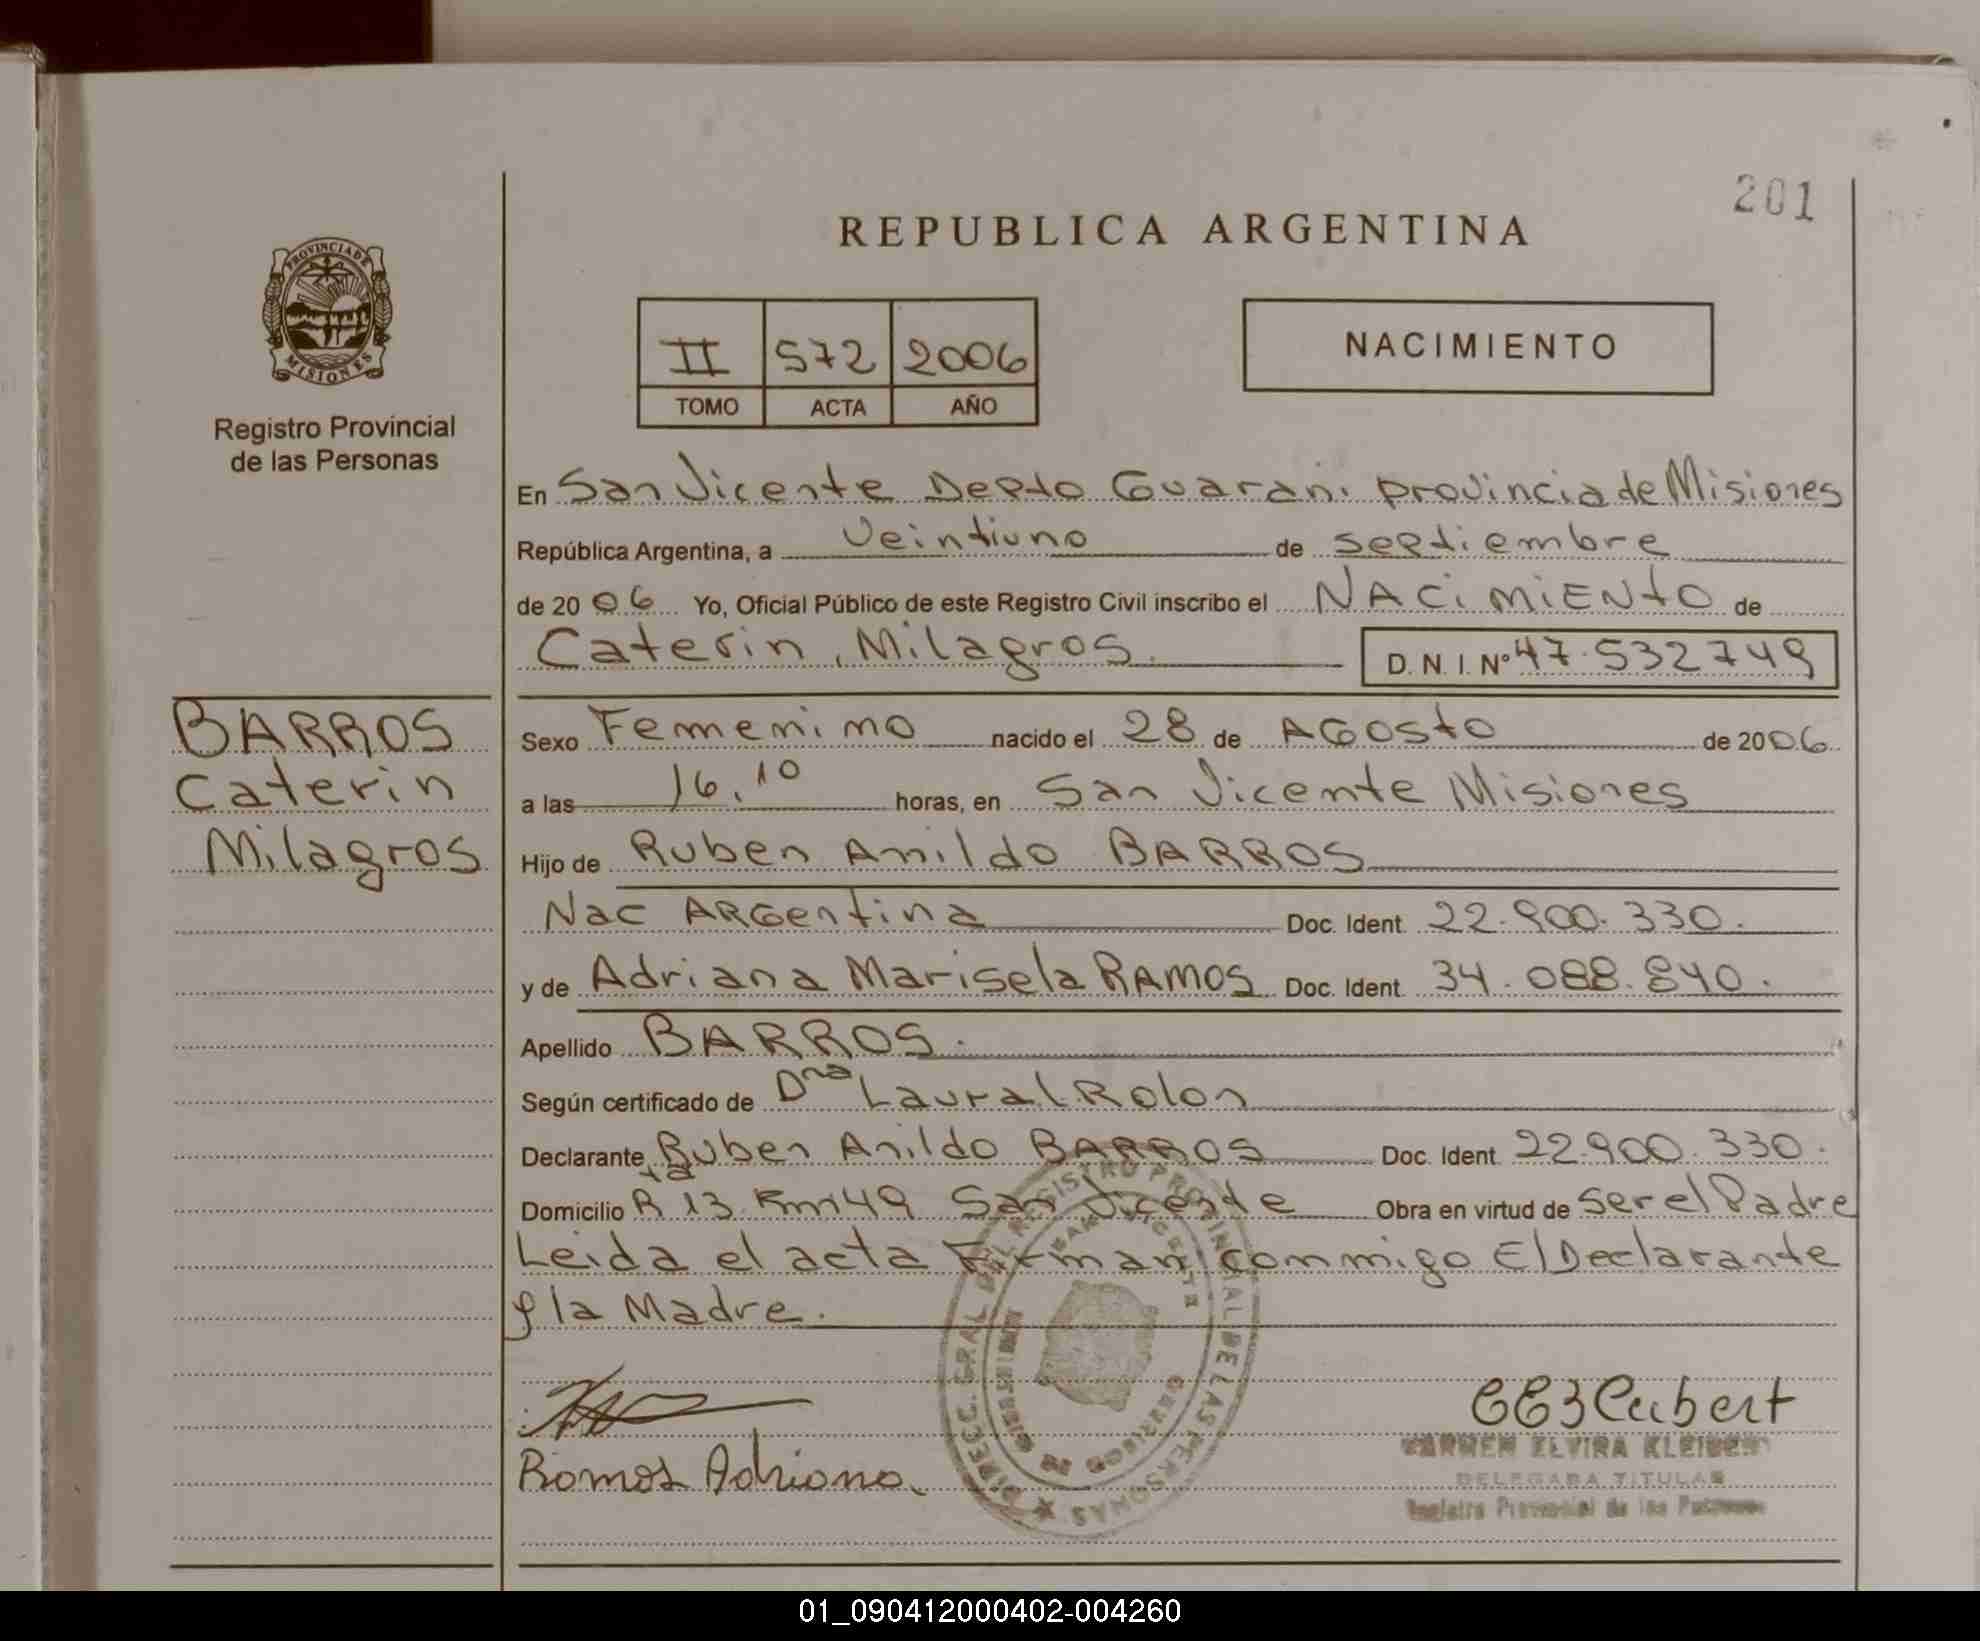 201
REPUBLICA ARGENTINA
PROVINCIA DE
MISIONES
Registro Provincial
de las Personas
II 572 2006
TOMO ACTA AÑO
NACIMIENTO
En San Vicente Depto Guarani provincia de Misiones
República Argentina, a Veintiuno de septiembre
de 2006 Yo, Oficial Público de este Registro Civil inscribo el NACIMIENTO de
Caterin Milagros D.N.I. Nº 47.532749
BARROS
Caterin
Milagros
Sexo Femenino nacido el 28 de AGOSTO de 2006
a las 16,10 horas, en San Vicente Misiones
Hijo de Ruben Anildo BARROS
Nac ARGentina Doc. Ident. 22.900.330.
y de Adriana Marisela RAMOS Doc. Ident. 34.088.840.
Apellido BARROS.
Según certificado de Dra Laura Rolon
Declarante Ruben Anildo BARROS Doc. Ident. 22.900.330.
Domicilio Rta 13 Km 49 San Vicente Obra en virtud de Ser el Padre
Leida el acta Firman conmigo El Declarante
y la Madre.
DIRECC. GRAL DEL REGISTRO PROVINCIAL DE LAS PERSONAS
SAN VICENTE
Ramos Adriana.
CARMEN ELVIRA
DELEGADA TITULAR
Registro Provincial de las Personas
01_090412000402-004260